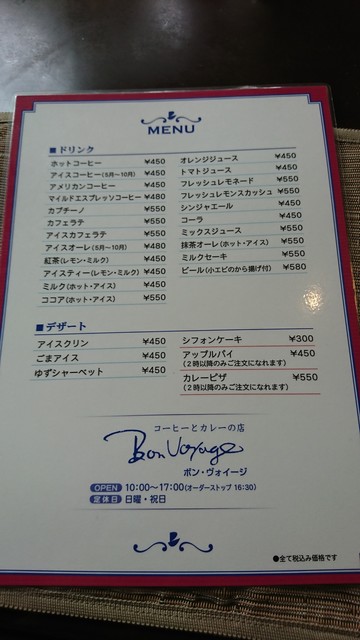 MENU
■ドリンク
ホットコーヒー ¥450
アイスコーヒー(5月〜10月) ¥450
アメリカンコーヒー ¥450
マイルドエスプレッソコーヒー ¥480
カプチーノ ¥550
カフェラテ ¥550
アイスカフェラテ ¥550
アイスオーレ(5月〜10月) ¥480
紅茶(レモン・ミルク) ¥450
アイスティー(レモン・ミルク) ¥450
ミルク(ホット・アイス) ¥450
ココア(ホット・アイス) ¥550
オレンジジュース ¥450
トマトジュース ¥450
フレッシュレモネード ¥550
フレッシュレモンスカッシュ ¥550
シンジャエール ¥450
コーラ ¥450
ミックスジュース ¥550
抹茶オーレ(ホット・アイス) ¥550
ミルクセーキ ¥550
ビール(小エビのから揚げ付) ¥580
■デザート
アイスクリン ¥450
ごまアイス ¥450
ゆずシャーベット ¥450
シフォンケーキ ¥300
アップルパイ ¥450
(2時以降のみご注文になれます)
カレーピザ ¥550
(2時以降のみご注文になれます)
コーヒーとカレーの店
Bon Voyage
ボン・ヴォイージ
OPEN 10:00〜17:00(オーダーストップ 16:30)
定休日 日曜・祝日
●全て税込み価格です